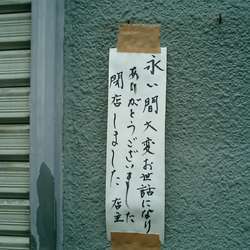 永い間大変お世話になり
ありがとうございました
閉店しました 店主